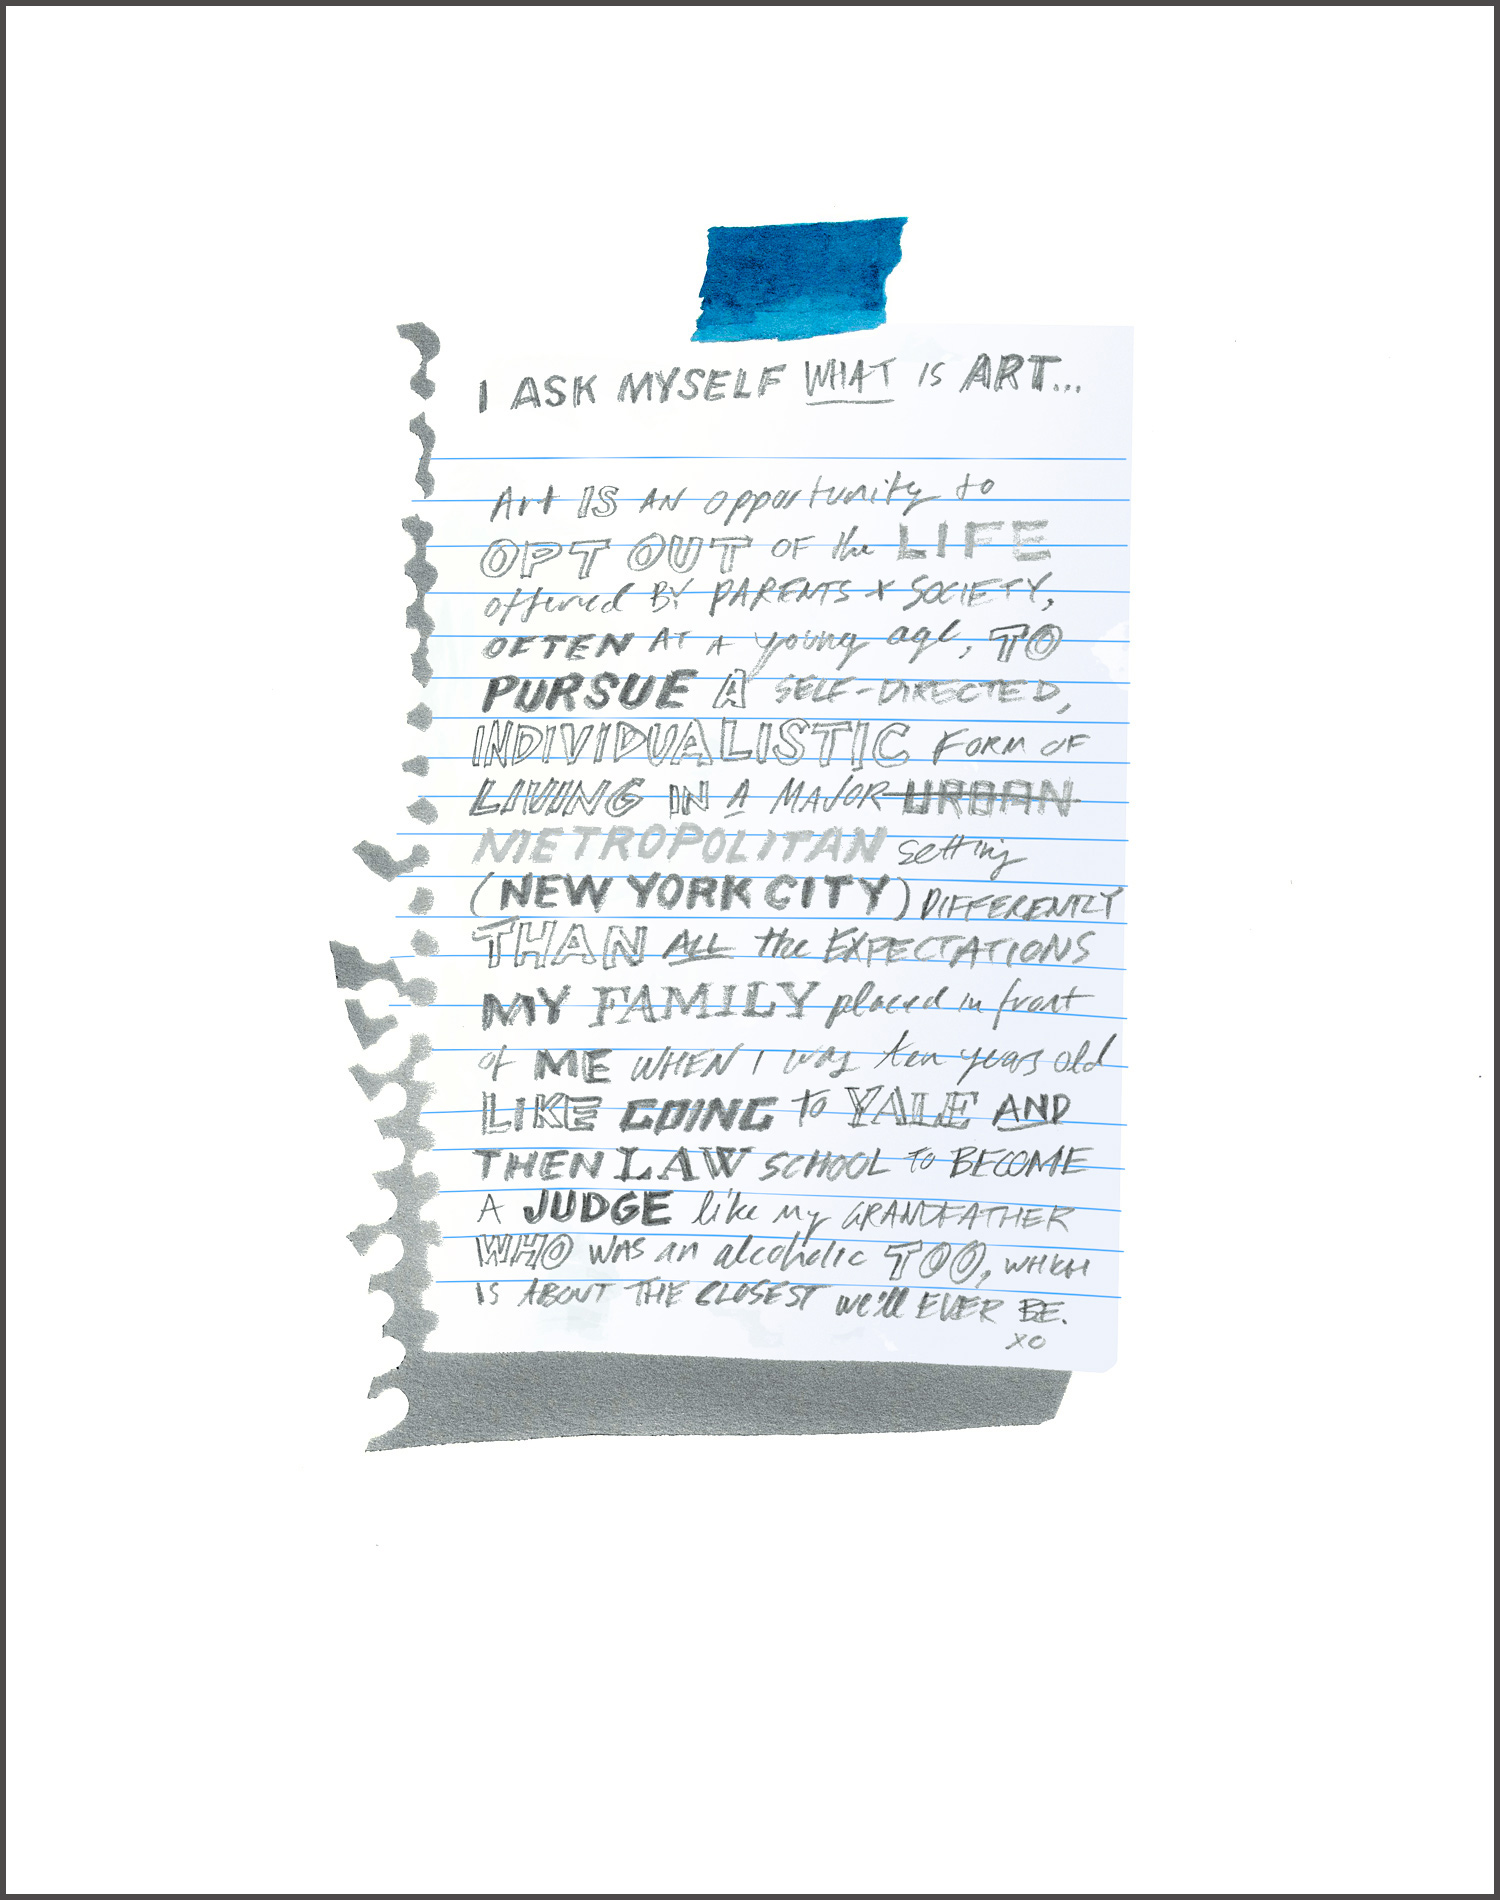 I ASK MYSELF WHAT IS ART...
Art IS AN opportunity to
OPT OUT OF the LIFE
offered BY PARENTS + SOCIETY,
OFTEN AT A young age, TO
PURSUE A SELF-DIRECTED,
INDIVIDUALISTIC FORM OF
LIVING IN A MAJOR URBAN
METROPOLITAN setting
(NEW YORK CITY) DIFFERENTLY
THAN ALL the EXPECTATIONS
MY FAMILY placed in front
of ME WHEN I was ten years old
LIKE GOING to YALE AND
THEN LAW SCHOOL TO BECOME
A JUDGE like my GRANDFATHER
WHO WAS an alcoholic TOO, WHICH
IS ABOUT THE CLOSEST we'll EVER BE.
XO